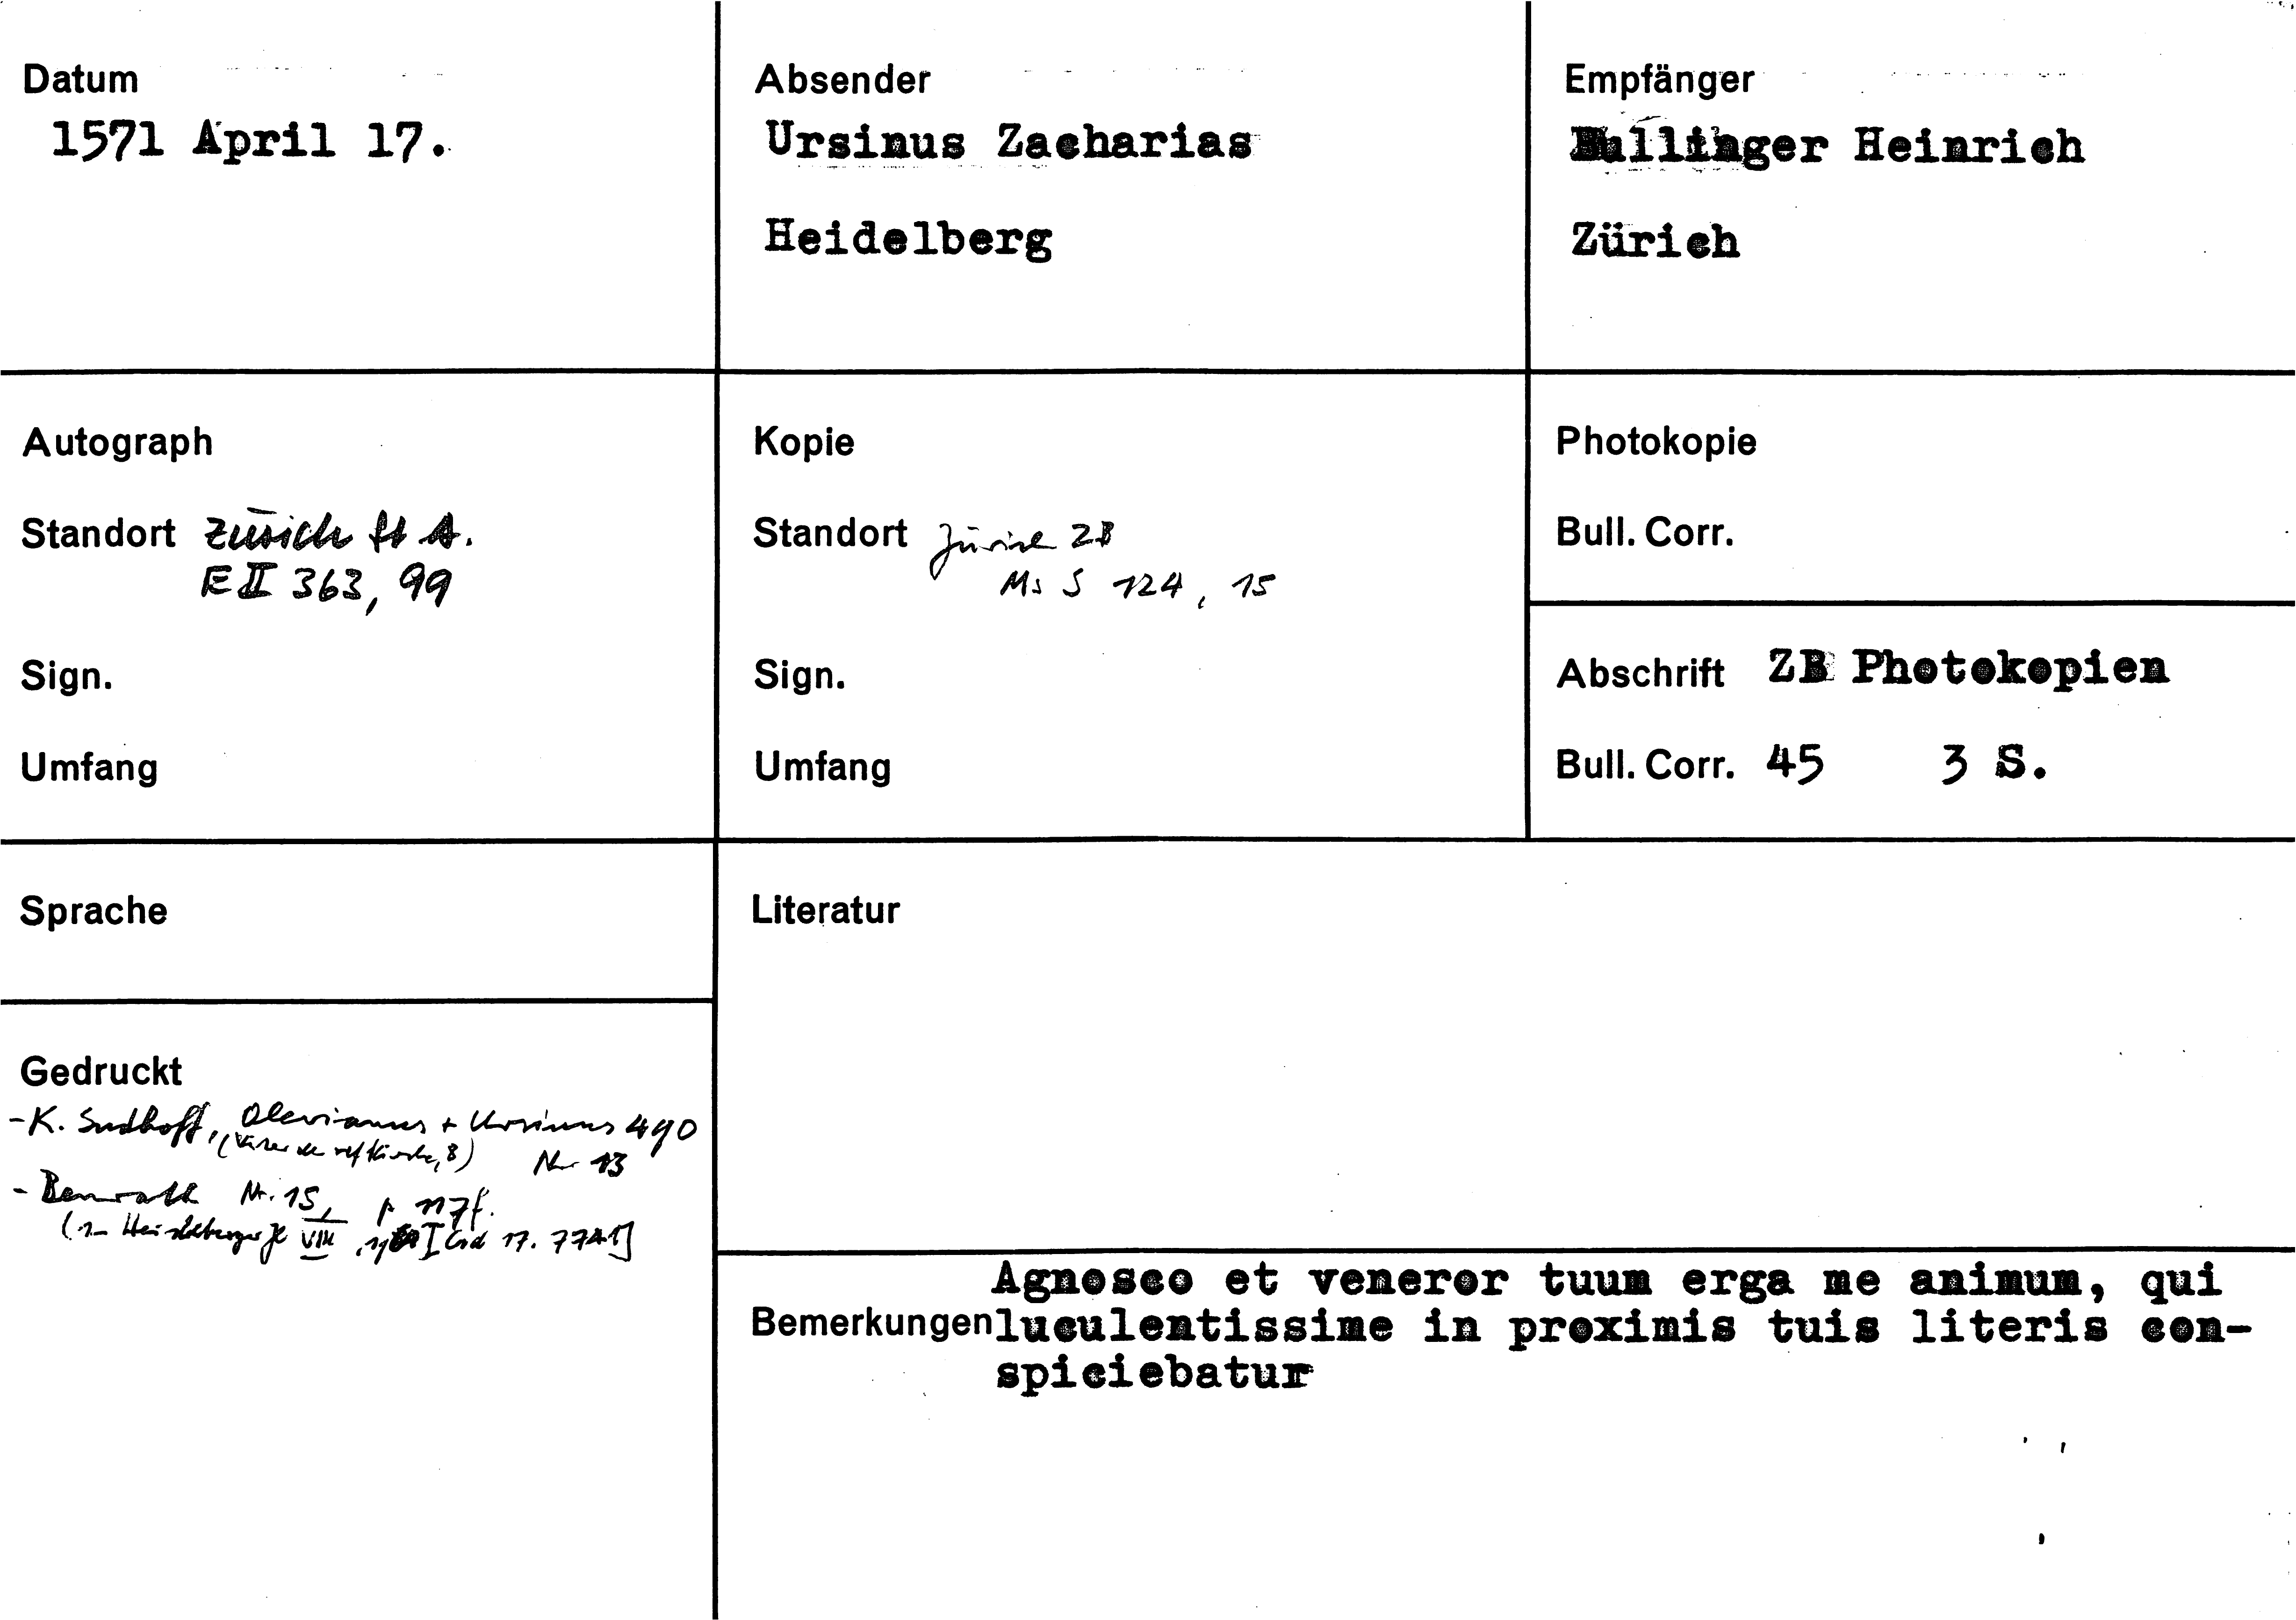 Datum
1571 April 17.
Absender
Ursinus Zacharias
Heidelberg
Empfänger
Bullinger Heinrich
Zürich
Autograph
Standort Zürich StA.
E II 363, 99
Sign.
Umfang
Kopie
Standort Zürich ZB
Ms S 124, 15
Sign.
Umfang
Photokopie
Bull. Corr.
Abschrift ZB Photokopien
Bull. Corr. 45 3 S.
Sprache
Literatur
Gedruckt
- K. Sudhoff, Olevianus + Ursinus 490
Nr 13
- Benrath Nr. 15, p 117f.
VIII 17. 7741]
Bemerkungen Agnosco et veneror tuum erga me animum, qui
luculentissime in proximis tuis literis con-
spiciebatur